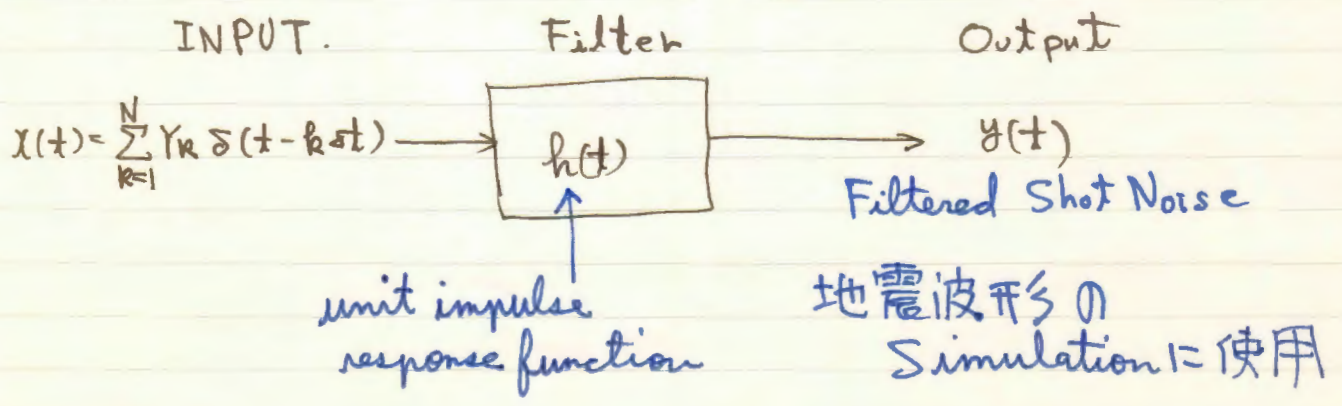 INPUT. Filter Output
x(t) = Σ_{k=1}^{N} Y_k δ(t - kδt) h(t) y(t)
Filtered Shot Noise
unit impulse 地震波形の
response function Simulationに使用